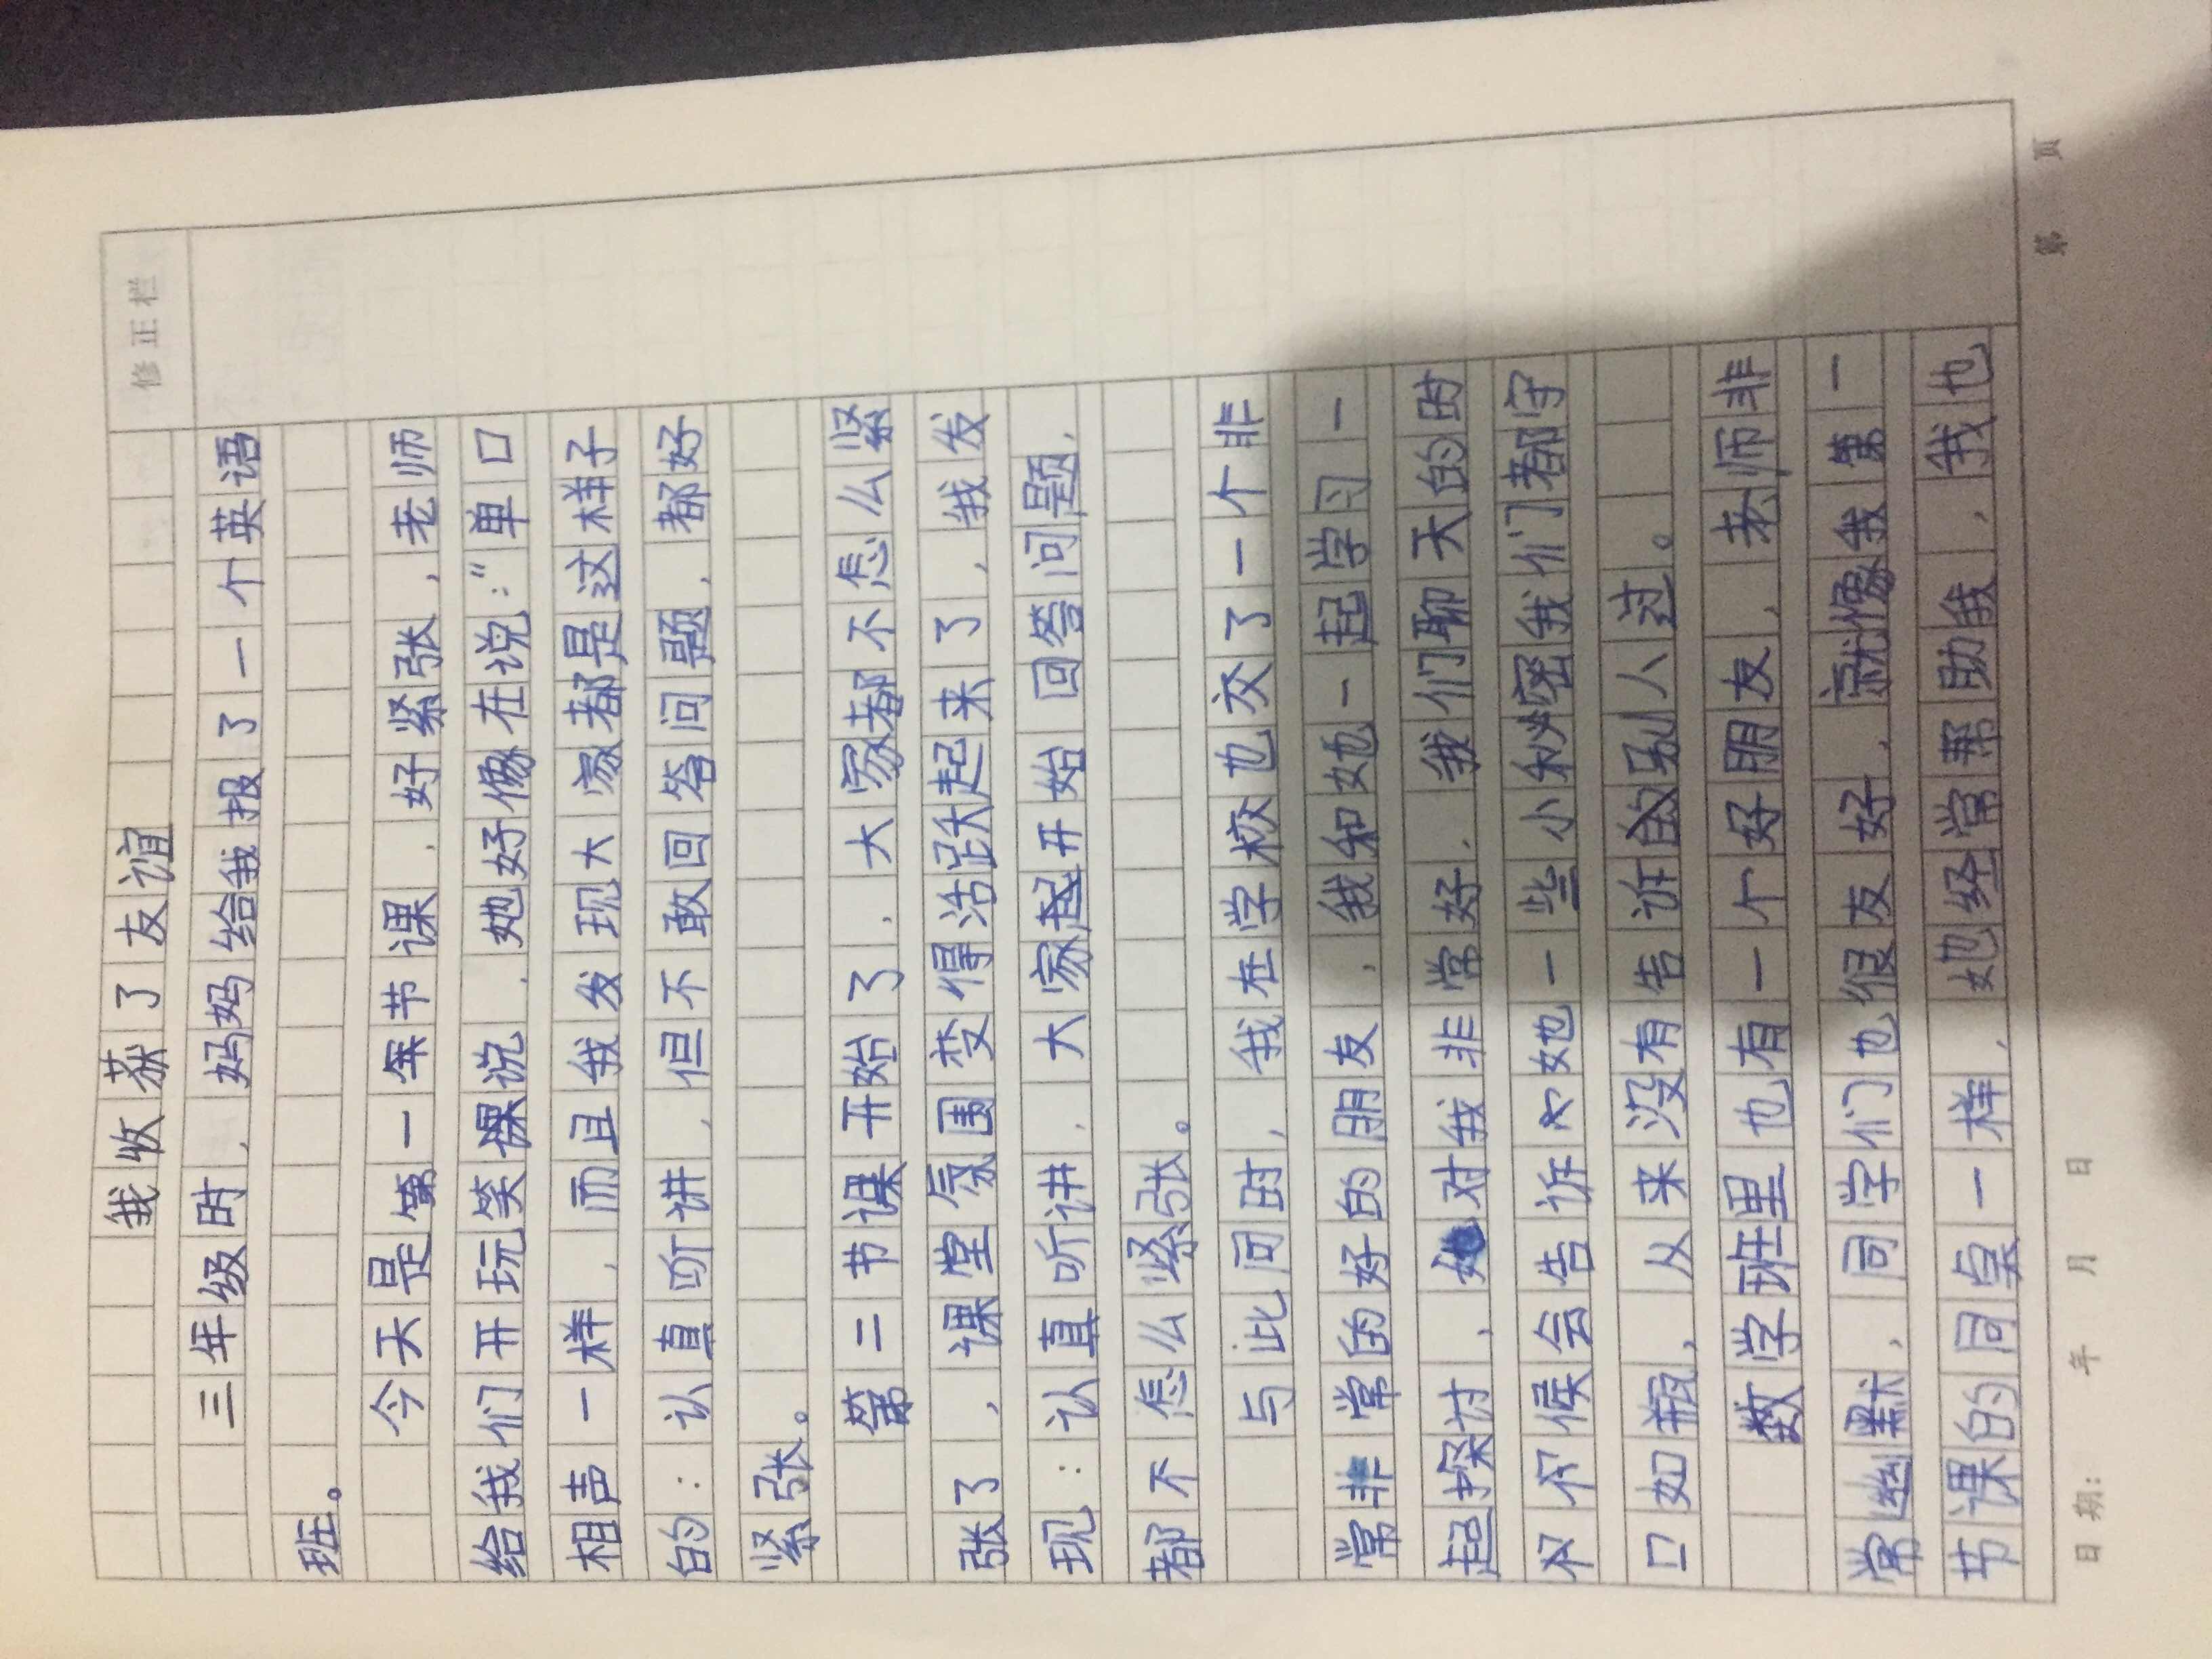 修正栏
我收获了友谊
三年级时，妈妈给我报了一个英语
班。
今天是第一年节课，好紧张，老师
给我们开玩笑课说，她好像在说：“单口
相声一样，而且我发现大家都是这样子
的：认真听讲，但不敢回答问题，都好
紧张。
第二节课开始了，大家都不怎么紧
张了，课堂氛围变得活跃起来了，我发
现：认真听讲，大家起开始回答问题，
都不怎么紧张。
与此同时，我在学校也交了一个非
常非常的好的朋友，我和她一起学习一
起探讨，她对我非常好，我们聊天的时
不候会告诉她一些小秘密我们都守
口如瓶，从来没有告诉的别人过。
数学班里也有一个好朋友，老师非
常幽默，同学们也很友好，就像我第一
节课的同桌一样，她经常帮助我，我也
日期： 年 月 日 第 页